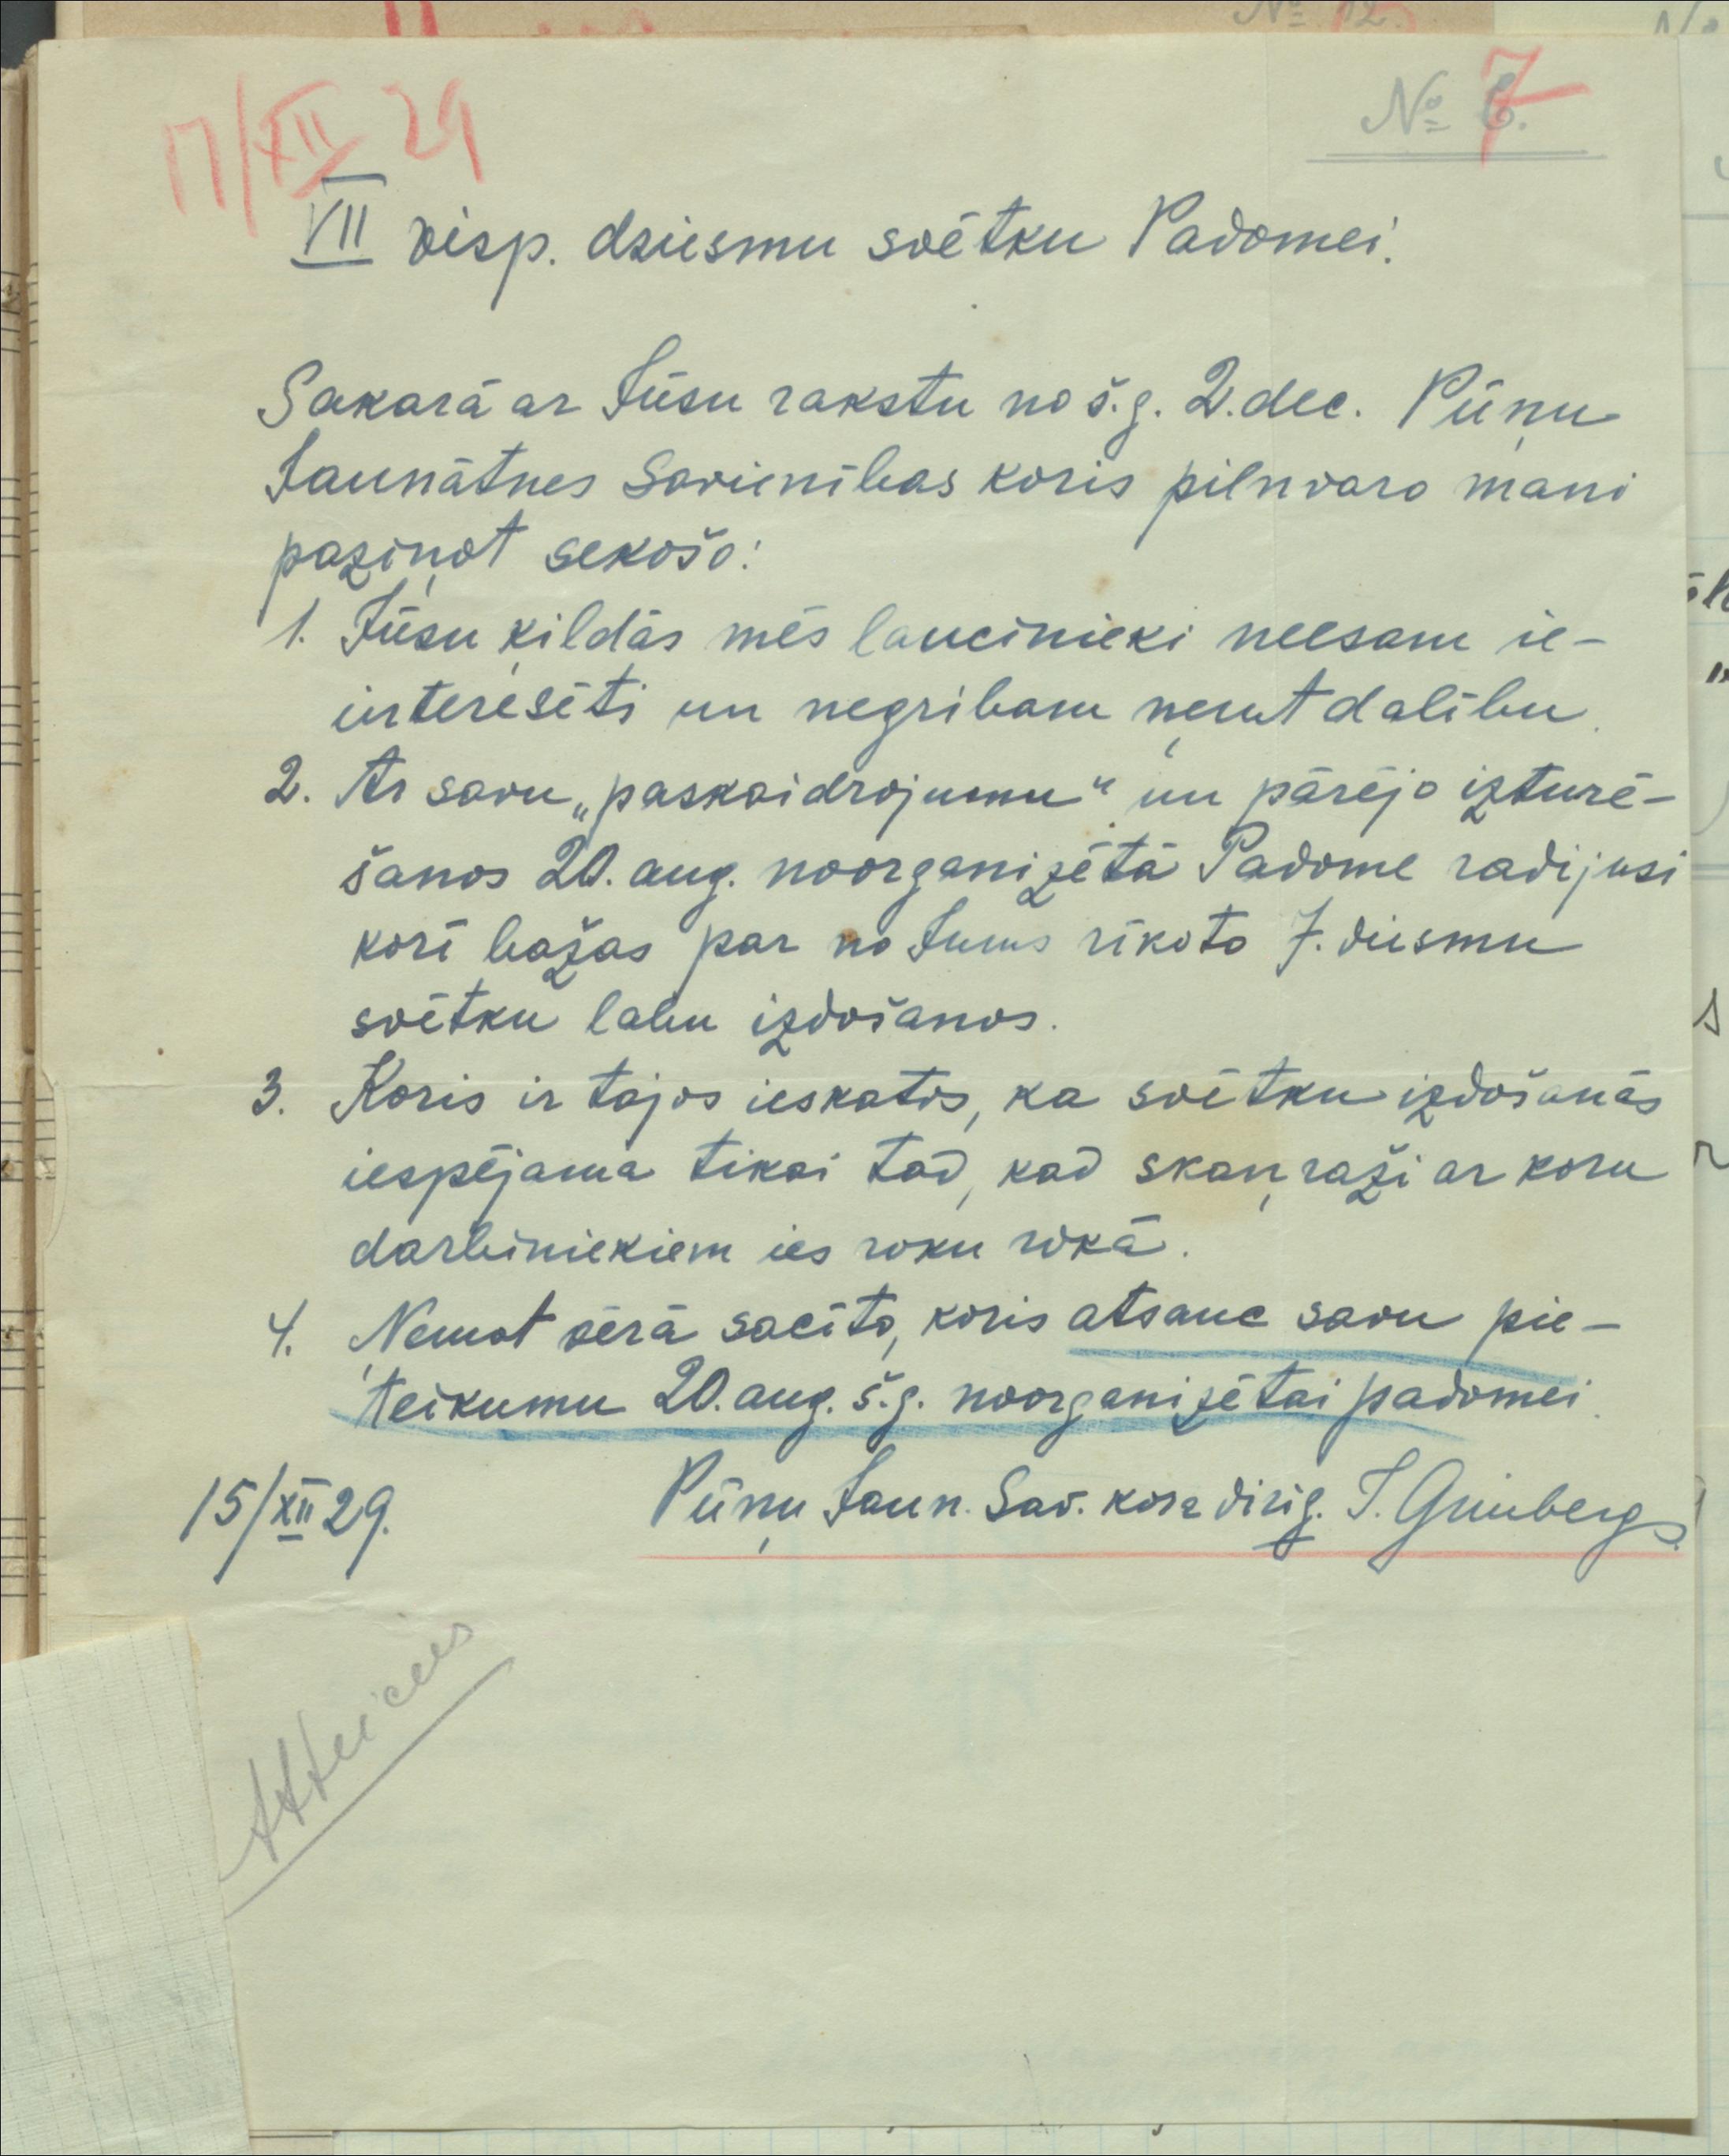 17/XII 29
№ 7
VII visp. dziesmu svētku Padomei.
Sakarā ar Jūsu rakstu no š.g. 2. dec. Pūņu
Jaunātnes Savienības koris pilnvaro mani
paziņot sekošo:
1. Jūsu ķildās mēs laucinieki neesam ie-
interesēti un negribam ņemt dalību.
2. Ar savu „paskaidrojumu“ un pārējo izturē-
šanos 20. aug. noorganizētā Padome radijusi
korī bažas par no Jums rīkoto 7. diesmu
svētku labu izdošanos.
3. Koris ir tajos ieskatos, ka svētku izdošanās
iespējama tikai tad, kad skaņraži ar koru
darbiniekiem ies roku rokā.
4. Ņemot vērā sacīto, koris atsauc savu pie-
teikumu 20. aug. š.g. noorganizētai padomei.
15/XII 29.
Pūņu Jaun. Sav. kora dirig. J. Grinbergs.
Atteicies
№ 12